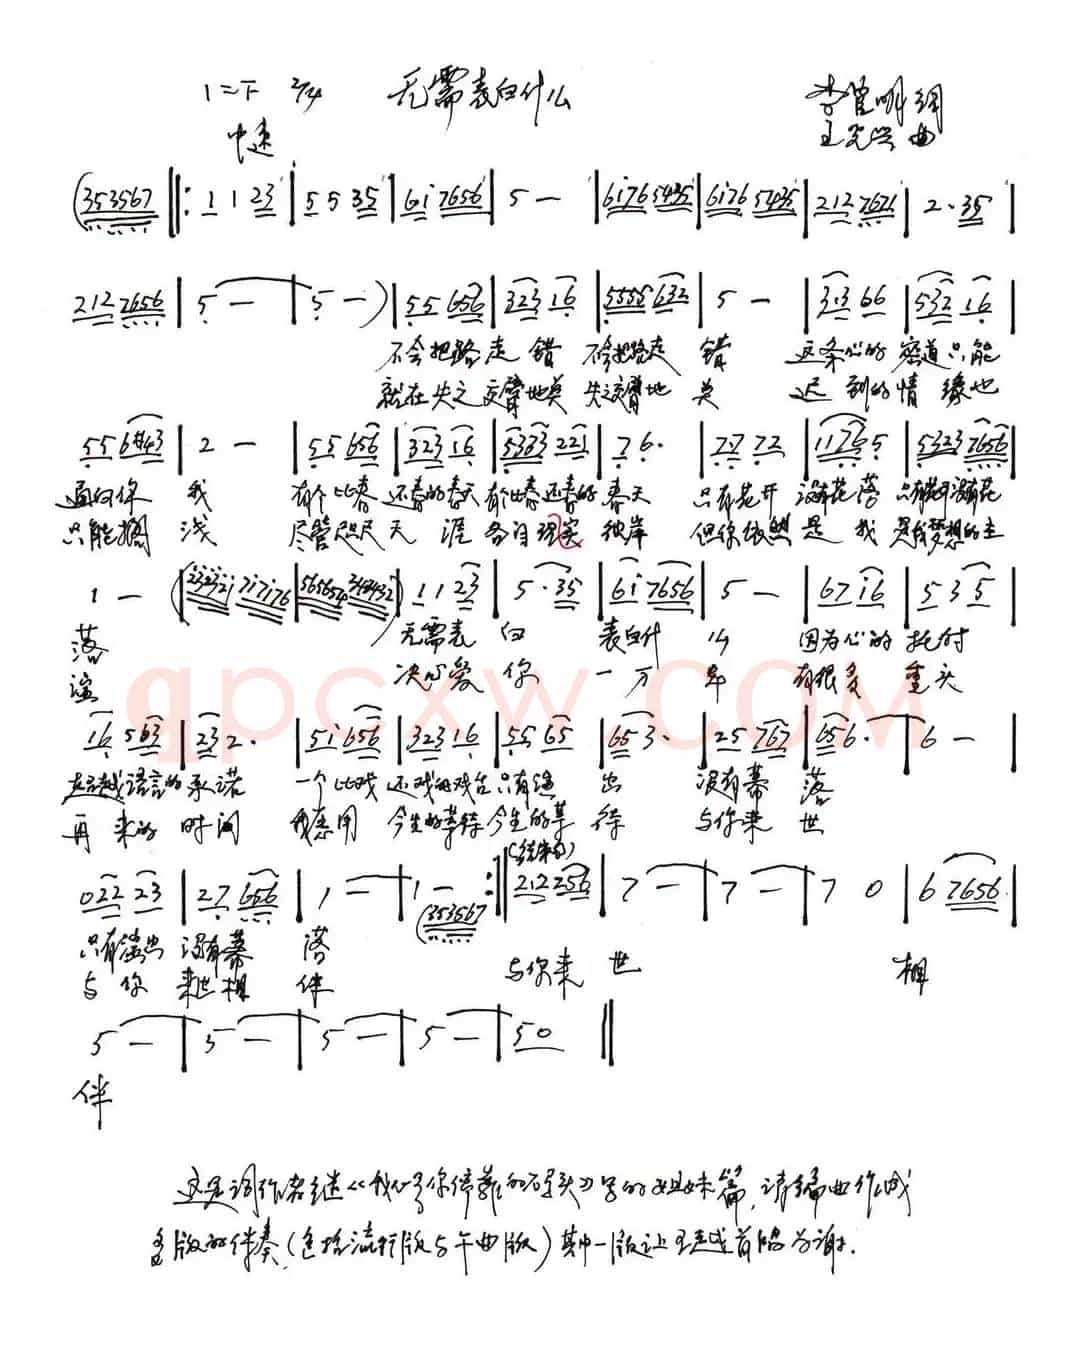 1=F 2/4 无需表白什么 李 明 词
中速 王 兴 曲
(353567 ‖: 1 1 23 | 5 5 35 | 6i 7656 | 5 — | 6i76 5435 | 6i76 5435 | 212 7671 | 2· 35 |
212 7656 | 5 — | 5 —) | 55 656 | 323 16 | 5555 632 | 5 — | 313 66 | 532 16 |
不会把路走 错 不会把路走 错 这条心的 密道只能
就在失之 交臂地莫 失之交臂地 莫 迟到的情缘也
55 6#43 | 2 — | 55 656 | 323 16 | 5333 221 | 7 6· | 77 72 | 1176 5 | 5323 7656 |
通向你 我 有个比春 还春的春天 有个比春还春的 春天 只有花开 没有花落 只有花开没有花
只能搁 浅 尽管咫尺 天 涯 各自 彼岸 但你依然 是 我 是我梦想的主
1 — (232321 717176 | 565654 343432) | 1 1 23 | 5· 35 | 6i 7656 | 5 — | 67 i6 | 5 3 5 |
落 无需表 白 表白什 么 因为心的 托付
演 决心爱 你 一 万 年 有很多 重头
16 563 | 23 2· | 5i 656 | 323 16 | 55 65 | 65 3· | 25 767 | 65 6· | 6 — |
超越语言的 承诺 一个比戏 还戏的戏台 只有演 出 没有幕 落
再 来的 时间 我愿用 今生的等待 今生的等 待 与你来 世
(结束句)
022 23 | 27 656 | 1 — | 1 — (353567 :‖ 212 256 | 7 — | 7 — | 7 0 | 6 7656 |
只有演出 没有幕 落
与 你 来世相 伴 与你来 世 相
5 — | 5 — | 5 — | 5 — | 50 ‖
伴
这是词作者继《我心》写的姐妹篇,请编曲作成
版的伴奏(包括流行版与午曲版)其中一版让王越首唱为谢.
qpcxw.COM